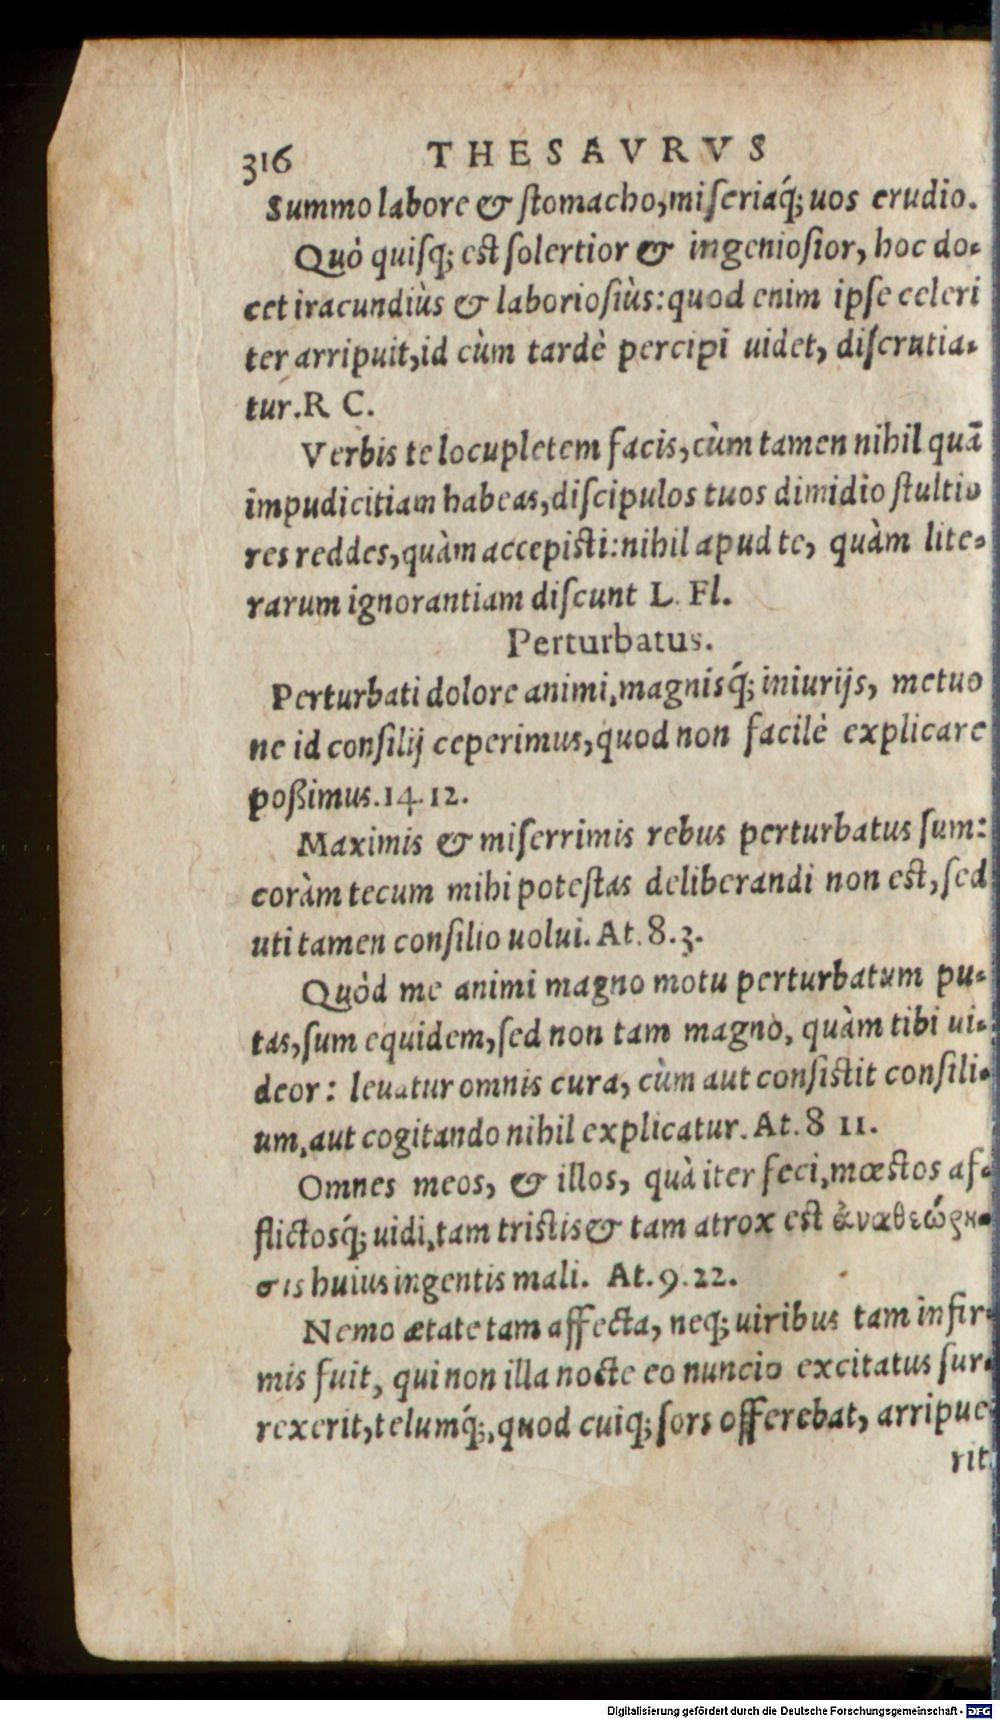 316 THESAVRVS
Summo labore & stomacho, miseriaq́; uos erudio.
Quò quisq; est solertior & ingeniosior, hoc do-
cet iracundiùs & laboriosiùs: quod enim ipse celeri
ter arripuit, id cùm tardè percipi uidet, discrutia-
tur. R C.
Verbis te locupletem facis, cùm tamen nihil quã
impudicitiam habeas, discipulos tuos dimidio stultio
res reddes, quàm accepisti: nihil apud te, quàm lite-
rarum ignorantiam discunt L. Fl.
Perturbatus.
Perturbati dolore animi, magnisq́; iniurijs, metuo
ne id consilij ceperimus, quod non facilè explicare
poßimus. 14. 12.
Maximis & miserrimis rebus perturbatus sum:
coràm tecum mihi potestas deliberandi non est, sed
uti tamen consilio uolui. At. 8. 3.
Quòd me animi magno motu perturbatum pu-
tas, sum equidem, sed non tam magno, quàm tibi ui-
deor: leuatur omnis cura, cùm aut consistit consili-
um, aut cogitando nihil explicatur. At. 8 11.
Omnes meos, & illos, quà iter feci, mœstos af-
flictosq́; uidi, tam tristis & tam atrox est ἀναθεώρη-
σις huius ingentis mali. At. 9. 22.
Nemo ætate tam affecta, neq; uiribus tam infir-
mis fuit, qui non illa nocte eo nuncio excitatus sur-
rexerit, telumq́;, quod cuiq; sors offerebat, arripue
rit.
Digitalisierung gefördert durch die Deutsche Forschungsgemeinschaft - DFG